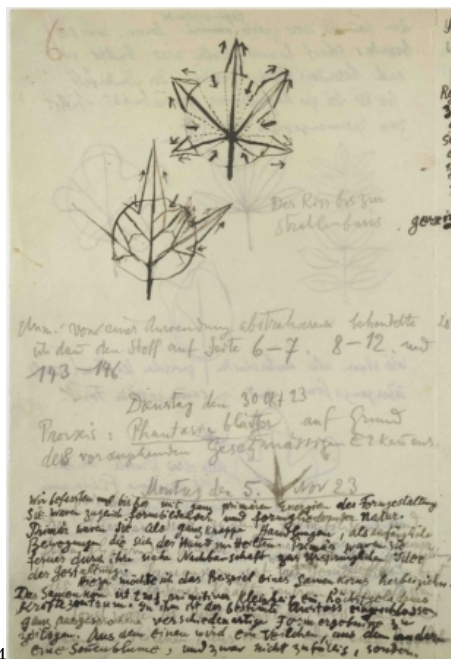 6
Der Riss bis zur
Strahlenbasis
Anm: von einer Anwendung abstrahierend behandelte
ich dann den Stoff auf Seite 6–7. 8–12. und
143–146
Dienstag den 30 Okt 23
Praxis: Phantasieblätter auf Grund
der vorangehenden Gesetzmässigen Erkenntnis.
Montag den 5. Nov 23
Wir befassten uns bisher mit ganz primären Energien der Formgestaltung
Sie waren zugleich formerzeugend und Natur.
Primär waren sie als ganz knappe Handlungen, als anfängliche
Bewegungen die sich der Hand mitteilten. Primär waren sie
ferner durch ihre nahe Nachbarschaft zur ursprünglichen Idee
der Gestaltung.
Heute möchte ich das Beispiel eines Samenkorns herbeiziehen.
Das Samenkorn ist trotz primitiver Kleinheit ein
Kraftzentrum. In ihm ist der bestimmte Anstoss eingeschlossen
ganz ausgesprochen verschiedenartige Formergebnisse zu
zeitigen. Aus dem einen wird ein Veilchen, aus dem andern
eine Sonnenblume, und zwar nicht zufällig, sondern